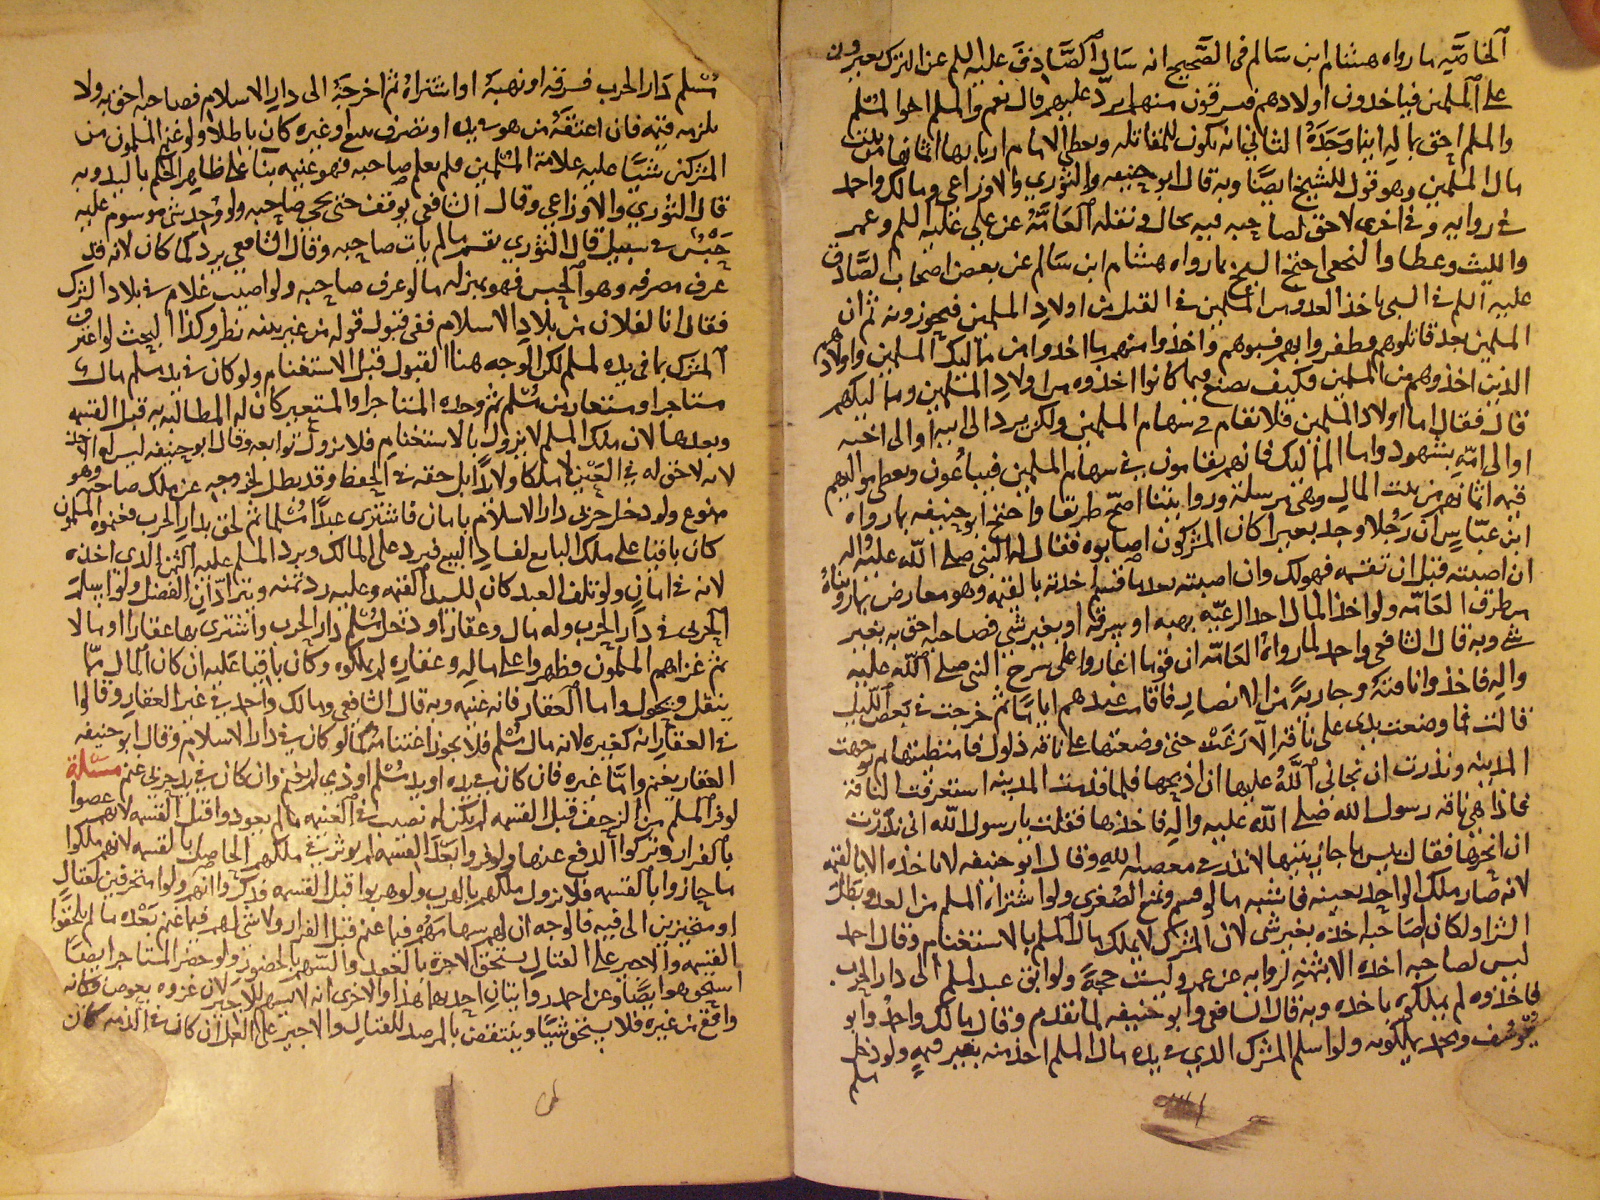 الخاصّيه ما رواه هشام ابن سالم في الصحيح انه سال الصّادق عليه السلم عن الترك يغيرون
على المسلمين فياخذون اولادهم فيسرقون منهم ايردّ عليهم قال نعم والمسلم اخو المسلم
والمسلم احق بماله اينما وجده الثاني انه يكون للمقاتله ويعطي الامام اربابها اثمانها من بيت
مال المسلمين وهو قول للشيخ ايضا وبه قال ابو حنيفه والثوري والاوزاعي ومالك واحمد
في روايه وفي اخرى لا حق لصاحبه فيه بحال ونقله العامّة عن علي عليه السلم وعمر
والليث وعطا والنخعي احتج الشيخ بما رواه هشام ابن سالم عن بعض اصحاب الصّادق
عليه السلم في السبي ياخذ العدو من المسلمين في القتل من اولاد المسلمين فيحوزونه ثم ان
المسلمين بعد قاتلوهم فظفروا بهم فسبوهم واخذوا منهم ما اخذوا من مماليك المسلمين واولادهم
الذين اخذوهم من المسلمين فكيف يصنع فيما كانوا اخذوه من اولاد المسلمين ومماليكهم
قال فقال اما اولاد المسلمين فلا تقام في سهام المسلمين ولكن يرد الى ابيه او الى اخيه
او الى امّه بشهود واما المماليك فانهم يقامون في سهام المسلمين فيباعون ويعطي مواليهم
قيمه اثمانهم من بيت المال وهي مرسلة وروايتنا اصحّ طريقا واحتج ابو حنيفه بما رواه
ابن عبّاس ان رجلا وجد بعيرا كان المشركون اصابوه فقال له النبي صلى الله عليه واله
ان اصبته قبل ان تقسمه فهو لك وان اصبته بعد ما قسم اخذته بالقيمه وهو معارض بما رويناه
من طرق العامّه ولو اخذ المال احد الرعيّه بهبه او بسرقه او بغير شي فصاحبه احق به بغير
شي وبه قال الشافعي واحمد لما رواه العامّه ان قوما اغاروا على سرح النبي صلى الله عليه
واله فاخذوا ناقته وجاريةً من الانصار فاقامت عندهم اياما ثم خرجت في بعض الليل
قالت فما وضعت يدي على ناقه الا رغت حتى وضعتها على ناقه ذلول فامتطتها ثم توجهت
المدينه ونذرت ان نجاني الله عليها ان اذبحها فلما قدمت المدينه استعرفت الناقة
فاذا هي ناقه رسول الله صلى الله عليه واله فاخذها فقلت يا رسول الله اني نذرت
ان انحرها فقال بيس ما جازيتها لا نذر في معصيه الله وقال ابو حنيفه لا ياخذه الا بالقيمه
لانه صار ملك الواحد بعينه فاشبه ما لو قسم ونمنع الصغرى ولو اشتراه المسلم من العدو بطل
الشرا وكان لصاحبه اخذه بغير شي لان المشرك لا يملك مال المسلم بالاستغنام وقال احمد
ليس لصاحبه اخذه الا بثمنه لروايه عن عمر وليست حجة ولو ابق عبد لمسلم الى دار الحرب
فاخذوه لم يملكوه باخذه وبه قال الشافعي وابو حنيفه لما تقدم وقال مالك واحمد وابو
يوسف ومحمد يملكونه ولو اسلم المشرك الذي في يده مال المسلم اخذ منه بغير قيمه ولو دخل
مسلم
مسلم دار الحرب فسرقه او نهبه او اشتراه ثم اخرجه الى دار الاسلام فصاحبه احق به ولا
يلزمه قيمه فان اعتقه من هو في يده او تصرف ببيع او غيره كان باطلا ولو غنم المسلمون من
المشركين شيئا عليه علامة المسلمين فلم يعلم صاحبه فهو غنيمه بنا على ظاهر الحكم باليد وبه
قال الثوري والاوزاعي وقال الشافعي يوقف حتى يجي صاحبه ولو وجد شي موسوم عليه
حبس في سبيل قال الثوري يقسم ما لم يات صاحبه وقال الشافعي يرد كما كان لانه قد
عرف مصرفه وهو الحبس فهو بمنزله ما لو عرف صاحبه ولو اصيب غلام في بلاد الشرك
فقال انا لفلان من بلاد الاسلام ففي قبول قوله من غير بينه نظر وكذا البحث لو اعترف
المشرك بما في يده لمسلم لكن الوجه هنا القبول قبل الاستغنام ولو كان في يد مسلم مال
مستاجر او مستعار من مسلم ثم وجده المستاجر او المستعير كان له المطالبه به قبل القسمه
وبعدها لان ملك المسلم لا يزول بالاستغنام فلا تزول توابعه وقال ابو حنيفه ليس لواحد
لانه لا حق له في العين لا ملكا ولا يدًا بل حقه في الحفظ وقد بطل لخروجه عن ملك صاحبه وهو
ممنوع ولو دخل حربي دار الاسلام بامان فاشترى عبدًا مسلما ثم لحق بدار الحرب فغنمه المسلمون
كان باقيا على ملك البايع لفساد البيع فيرد على المالك ويرد المسلم عليه الثمن الذي اخذه
لانه في امان ولو تلف العبد كان للسيد القيمه وعليه رد ثمنه ويترادّان الفضل ولو اسلم
الحربي في دار الحرب وله مال وعقار او دخل مسلم دار الحرب واشترى بها عقارا او مالا
ثم غزاهم المسلمون فظهروا على ماله وعقاره لم يملكوه وكان باقيا عليه ان كان المال ممّا
ينقل ويحول واما العقار فانه غنيمه وبه قال الشافعي ومالك واحمد في غير العقار وقالوا
في العقار انه كغيره لانه مال مسلم فلا يجوز اغتنامه كما لو كان في دار الاسلام وقال ابو حنيفه
العقار يغنم وامّا غيره فان كان في يده او يد مسلم او ذمي لم يغنم وان كان في يد حربي غنم مسئلة
لو فر المسلم من الزحف قبل القسمه لم يكن له نصيب في الغنيمه ما لم يعود وا قبل القسمه لانهم عصوا
بالفرار وتركوا الدفع عنها ولو فروا بعد القسمه لم يوثر في ملكهم الحاصل بالقسمه لانهم ملكوا
ما حازوا بالقسمه فلا يزول ملكهم بالهرب ولو هربوا قبل القسمه فذكروا انهم ولوا متحرفين لقتال
او متحيزين الى فيه فالوجه ان لهم سهامهم فيما غنم قبل الفرار ولا شي لهم فيما غنم بعده ما لم يلحقوا
القسمه والاجير على القتال يستحق الاجره بالعقد والسّهم بالحضور ولو حضر المستاجر ايضا
استحق هو ايضا وعن احمد روايتان احديهما هذا والاخرى انه لا يسهم للاجير لان غزوه بعوض فكانه
واقع من غيره فلا يستحق شيئا وينتقض بالمرصد للقتال والاجير على العمل ان كان في الذمه كان